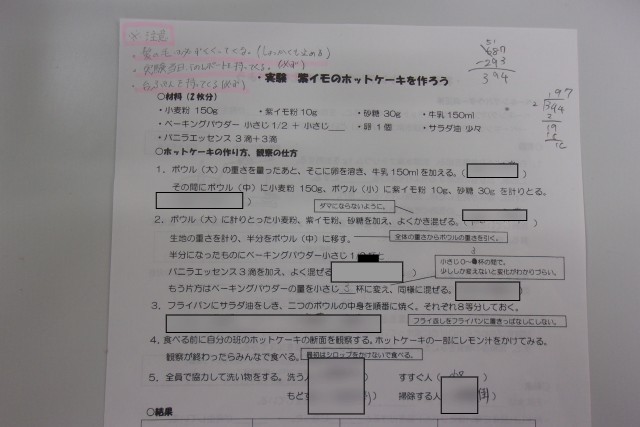 ※ 注意
・髪の毛は必ずくくってくる。(しょいくも止める)
・実験当日このレポートを持ってくる。(必ず)
持ってくる(必ず)
51
687
-293
394
197
394
2
19
18
12
・実験 紫イモのホットケーキを作ろう
○材料(2枚分)
・小麦粉 150g ・紫イモ粉 10g ・砂糖 30g ・牛乳 150ml
・ベーキングパウダー 小さじ1/2 + 小さじ___ ・卵 1個 ・サラダ油 少々
・バニラエッセンス 3滴+3滴
○ホットケーキの作り方、観察の仕方
1.ボウル(大)の重さを量ったあと、そこに卵を溶き、牛乳150mlを加える。(
その間にボウル(中)に小麦粉 150g、ボウル(小)に紫イモ粉 10g、砂糖 30g を計りとる。
ダマにならないように。
2.ボウル(大)に計りとった小麦粉、紫イモ粉、砂糖を加え、よくかき混ぜる。
生地の重さを計り、半分をボウル(中)に移す。
全体の重さからボウルの重さを引く。
半分になったものにベーキングパウダー小さじ1
小さじ0～ 杯の間で、
少ししか変えないと変化がわかりづらい。
バニラエッセンス3滴を加え、よく混ぜる )
もう片方はベーキングパウダーの量を小さじ 杯に変え、同様に混ぜる。
3.フライパンにサラダ油をしき、二つのボウルの中身を順番に焼く。それぞれ8等分しておく。
フライ返しをフライパンに置きっぱなしにしない。
4.食べる前に自分の班のホットケーキの断面を観察する。ホットケーキの一部にレモン汁をかけてみる。
観察が終わったらみんなで食べる。
最初はシロップをかけないで食べる。
5.全員で協力して洗い物をする。洗う人 ) すすぐ人( )
もど ) 掃除する人
○結果